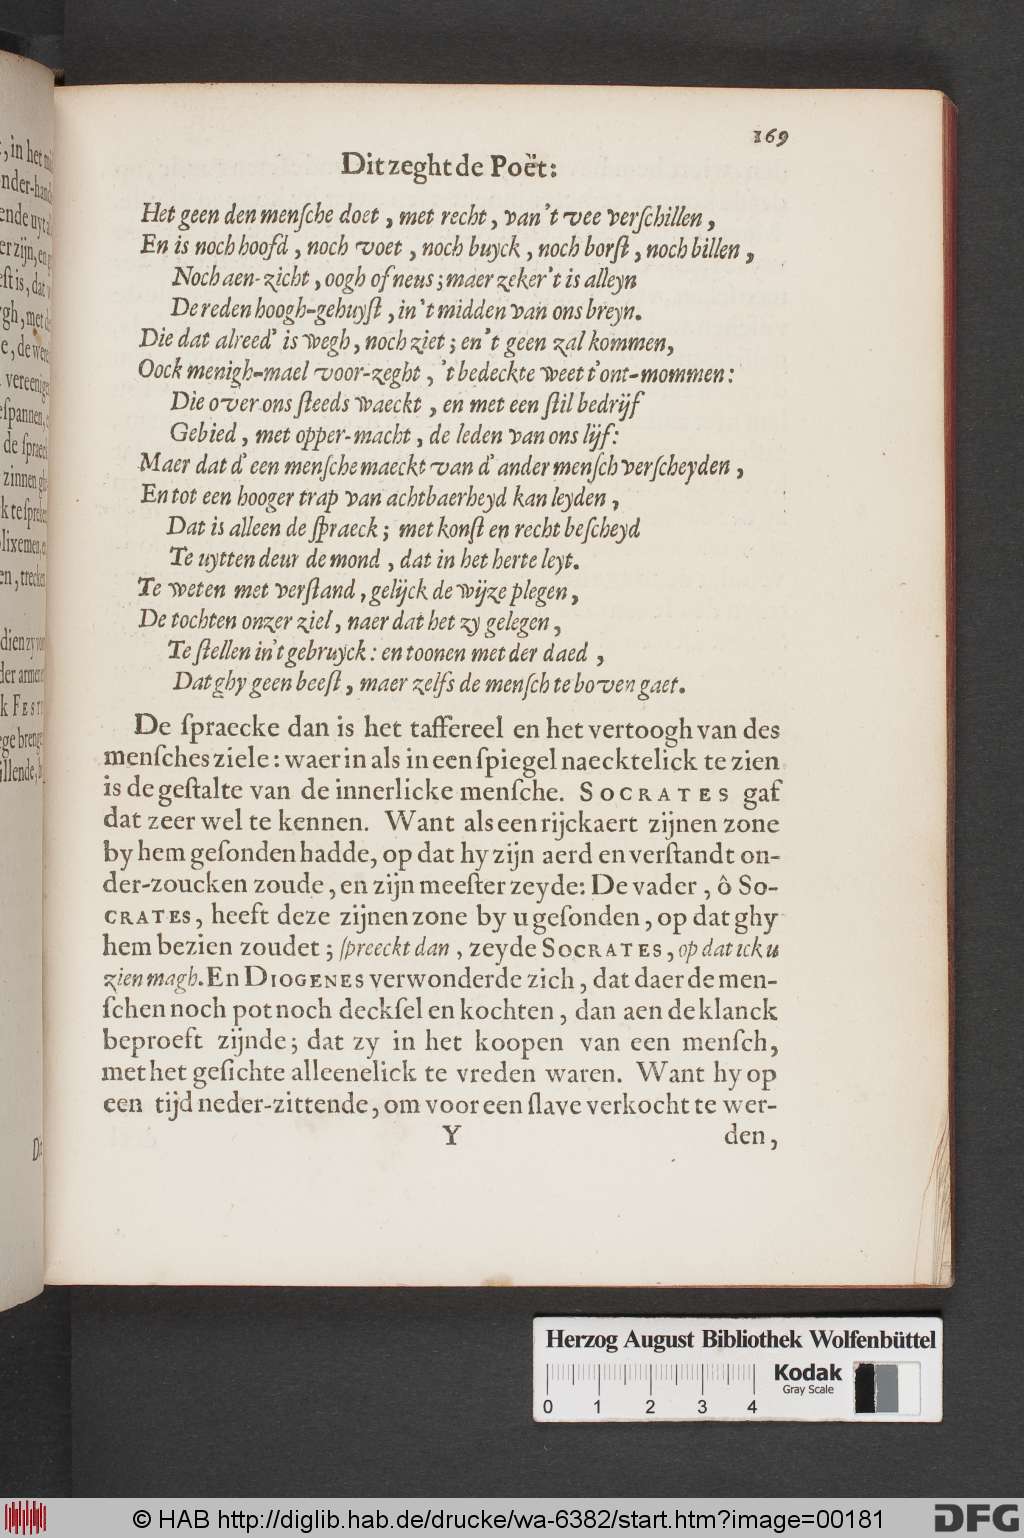 169
Dit zeght de Poët:
Het geen den menſche doet, met recht, van't vee verſchillen,
En is noch hoofd, noch voet, noch buyck, noch borſt, noch billen,
Noch aen-zicht, oogh of neus; maer zeker't is alleyn
De reden hoogh-gehuyſt, in't midden van ons breyn.
Die dat alreed' is wegh, noch ziet; en't geen zal kommen,
Oock menigh-mael voor-zeght, 't bedeckte weet t'ont-mommen:
Die over ons ſteeds waeckt, en met een ſtil bedrijf
Gebied, met opper-macht, de leden van ons lijf:
Maer dat d'een menſche maeckt van d'ander menſch verſcheyden,
En tot een hooger trap van achtbaerheyd kan leyden,
Dat is alleen de ſpraeck; met konſt en recht beſcheyd
Te uytten deur de mond, dat in het herte leyt.
Te weten met verſtand, gelijck de wijze plegen,
De tochten onzer ziel, naer dat het zy gelegen,
Te ſtellen in't gebruyck: en toonen met der daed,
Dat ghy geen beeſt, maer zelfs de menſch te boven gaet.
De ſpraecke dan is het taffereel en het vertoogh van des
menſches ziele: waer in als in een ſpiegel naecktelick te zien
is de geſtalte van de innerlicke menſche. SOCRATES gaf
dat zeer wel te kennen. Want als een rijckaert zijnen zone
by hem geſonden hadde, op dat hy zijn aerd en verſtandt on-
der-zoucken zoude, en zijn meeſter zeyde: De vader, ô SO-
CRATES, heeft deze zijnen zone by u geſonden, op dat ghy
hem bezien zoudet; ſpreeckt dan, zeyde SOCRATES, op dat ick u
zien magh. En DIOGENES verwonderde zich, dat daer de men-
ſchen noch pot noch deckſel en kochten, dan aen de klanck
beproeft zijnde; dat zy in het koopen van een menſch,
met het geſichte alleenelick te vreden waren. Want hy op
een tijd neder-zittende, om voor een ſlave verkocht te wer-
Y den,
Herzog August Bibliothek Wolfenbüttel
Kodak
Gray Scale
0 1 2 3 4
© HAB http://diglib.hab.de/drucke/wa-6382/start.htm?image=00181
DFG